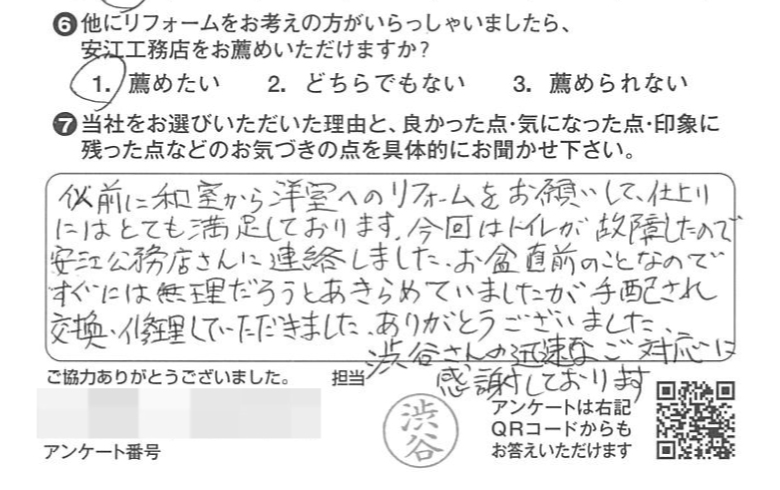 ❻他にリフォームをお考えの方がいらっしゃいましたら、
安江工務店をお薦めいただけますか?
1. 薦めたい 2. どちらでもない 3. 薦められない
❼当社をお選びいただいた理由と、良かった点・気になった点・印象に
残った点などのお気づきの点を具体的にお聞かせ下さい。
以前に和室から洋室へのリフォームをお願いして、仕上り
にはとても満足しております。今回はトイレが故障したので
安江公務店さんに連絡しました。お盆直前のことなので
すぐには無理だろうとあきらめていましたが手配され
交換・修理していただきました。ありがとうございました。
渋谷さんの迅速なご対応に
感謝しております
ご協力ありがとうございました。 担当
渋谷
アンケート番号
アンケートは右記
QRコードからも
お答えいただけます